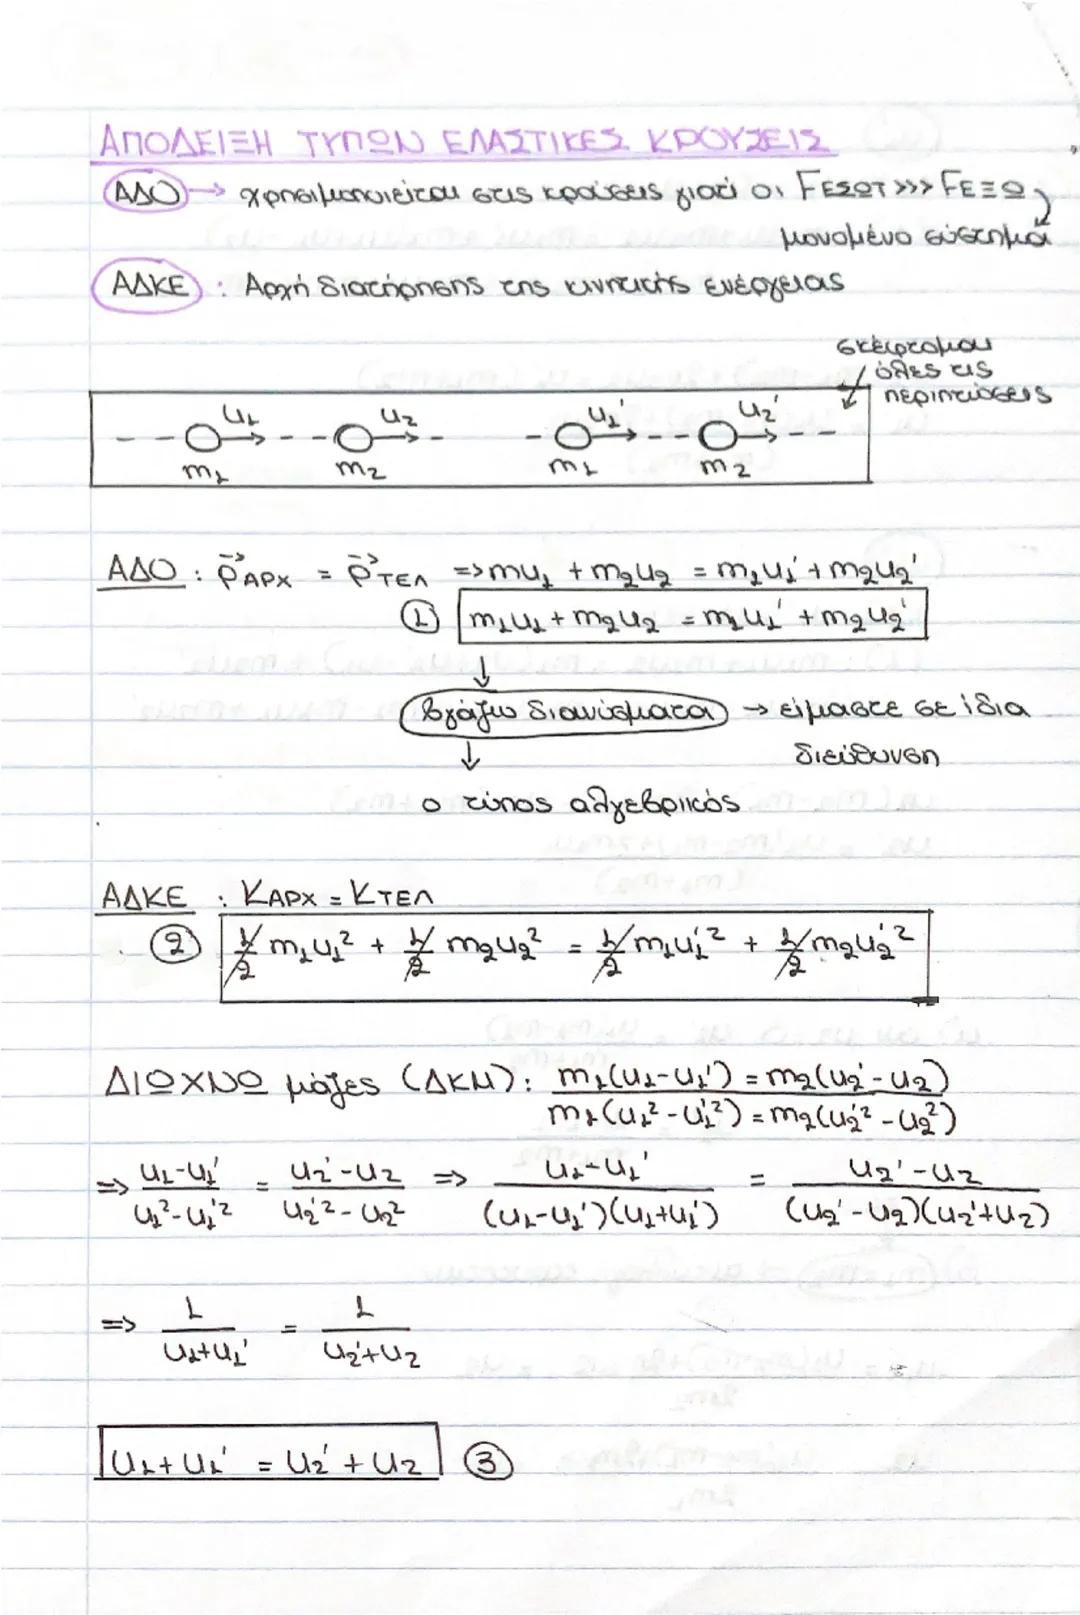 ΑΠΟΔΕΙΞΗ ΤΥΠΩΝ ΕΛΑΣΤΙΚΕΣ ΚΡΟΥΣΕΙΣ
ΑΔΟ → χρησιμοποιείται στις κρούσεις γιατί οι FΕΣΩΤ >>> FΕΞΩ
μονομένο σύστημα
ΑΔΚΕ : Αρχή διατήρησης της κινητικής ενέργειας
σκέφτομαι
όλες τις
περιπτώσεις
u₁ u₂ u₁' u₂'
m₁ m₂ m₁ m₂
ΑΔΟ : p⃗ΑΡΧ = p⃗ΤΕΛ => mu₁ + m₂u₂ = m₁u₁' + m₂u₂'
① m₁u₁ + m₂u₂ = m₁u₁' + m₂u₂'
↓
βγάζω διανύσματα → είμαστε σε ίδια
↓ διεύθυνση
ο τύπος αλγεβρικός
ΑΔΚΕ : ΚΑΡΧ = ΚΤΕΛ
② 1/2 m₁u₁² + 1/2 m₂u₂² = 1/2 m₁u₁'² + 1/2 m₂u₂'²
ΔΙΩΧΝΩ μάζες (ΔΚΜ): m₁(u₁-u₁') = m₂(u₂'-u₂)
m₁(u₁²-u₁'²) = m₂(u₂'²-u₂²)
=> u₁-u₁' / u₁²-u₁'² = u₂'-u₂ / u₂'²-u₂² => u₁-u₁' / (u₁-u₁')(u₁+u₁') = u₂'-u₂ / (u₂'-u₂)(u₂'+u₂)
=> 1 / u₁+u₁' = 1 / u₂'+u₂
u₁+u₁' = u₂'+u₂ ③